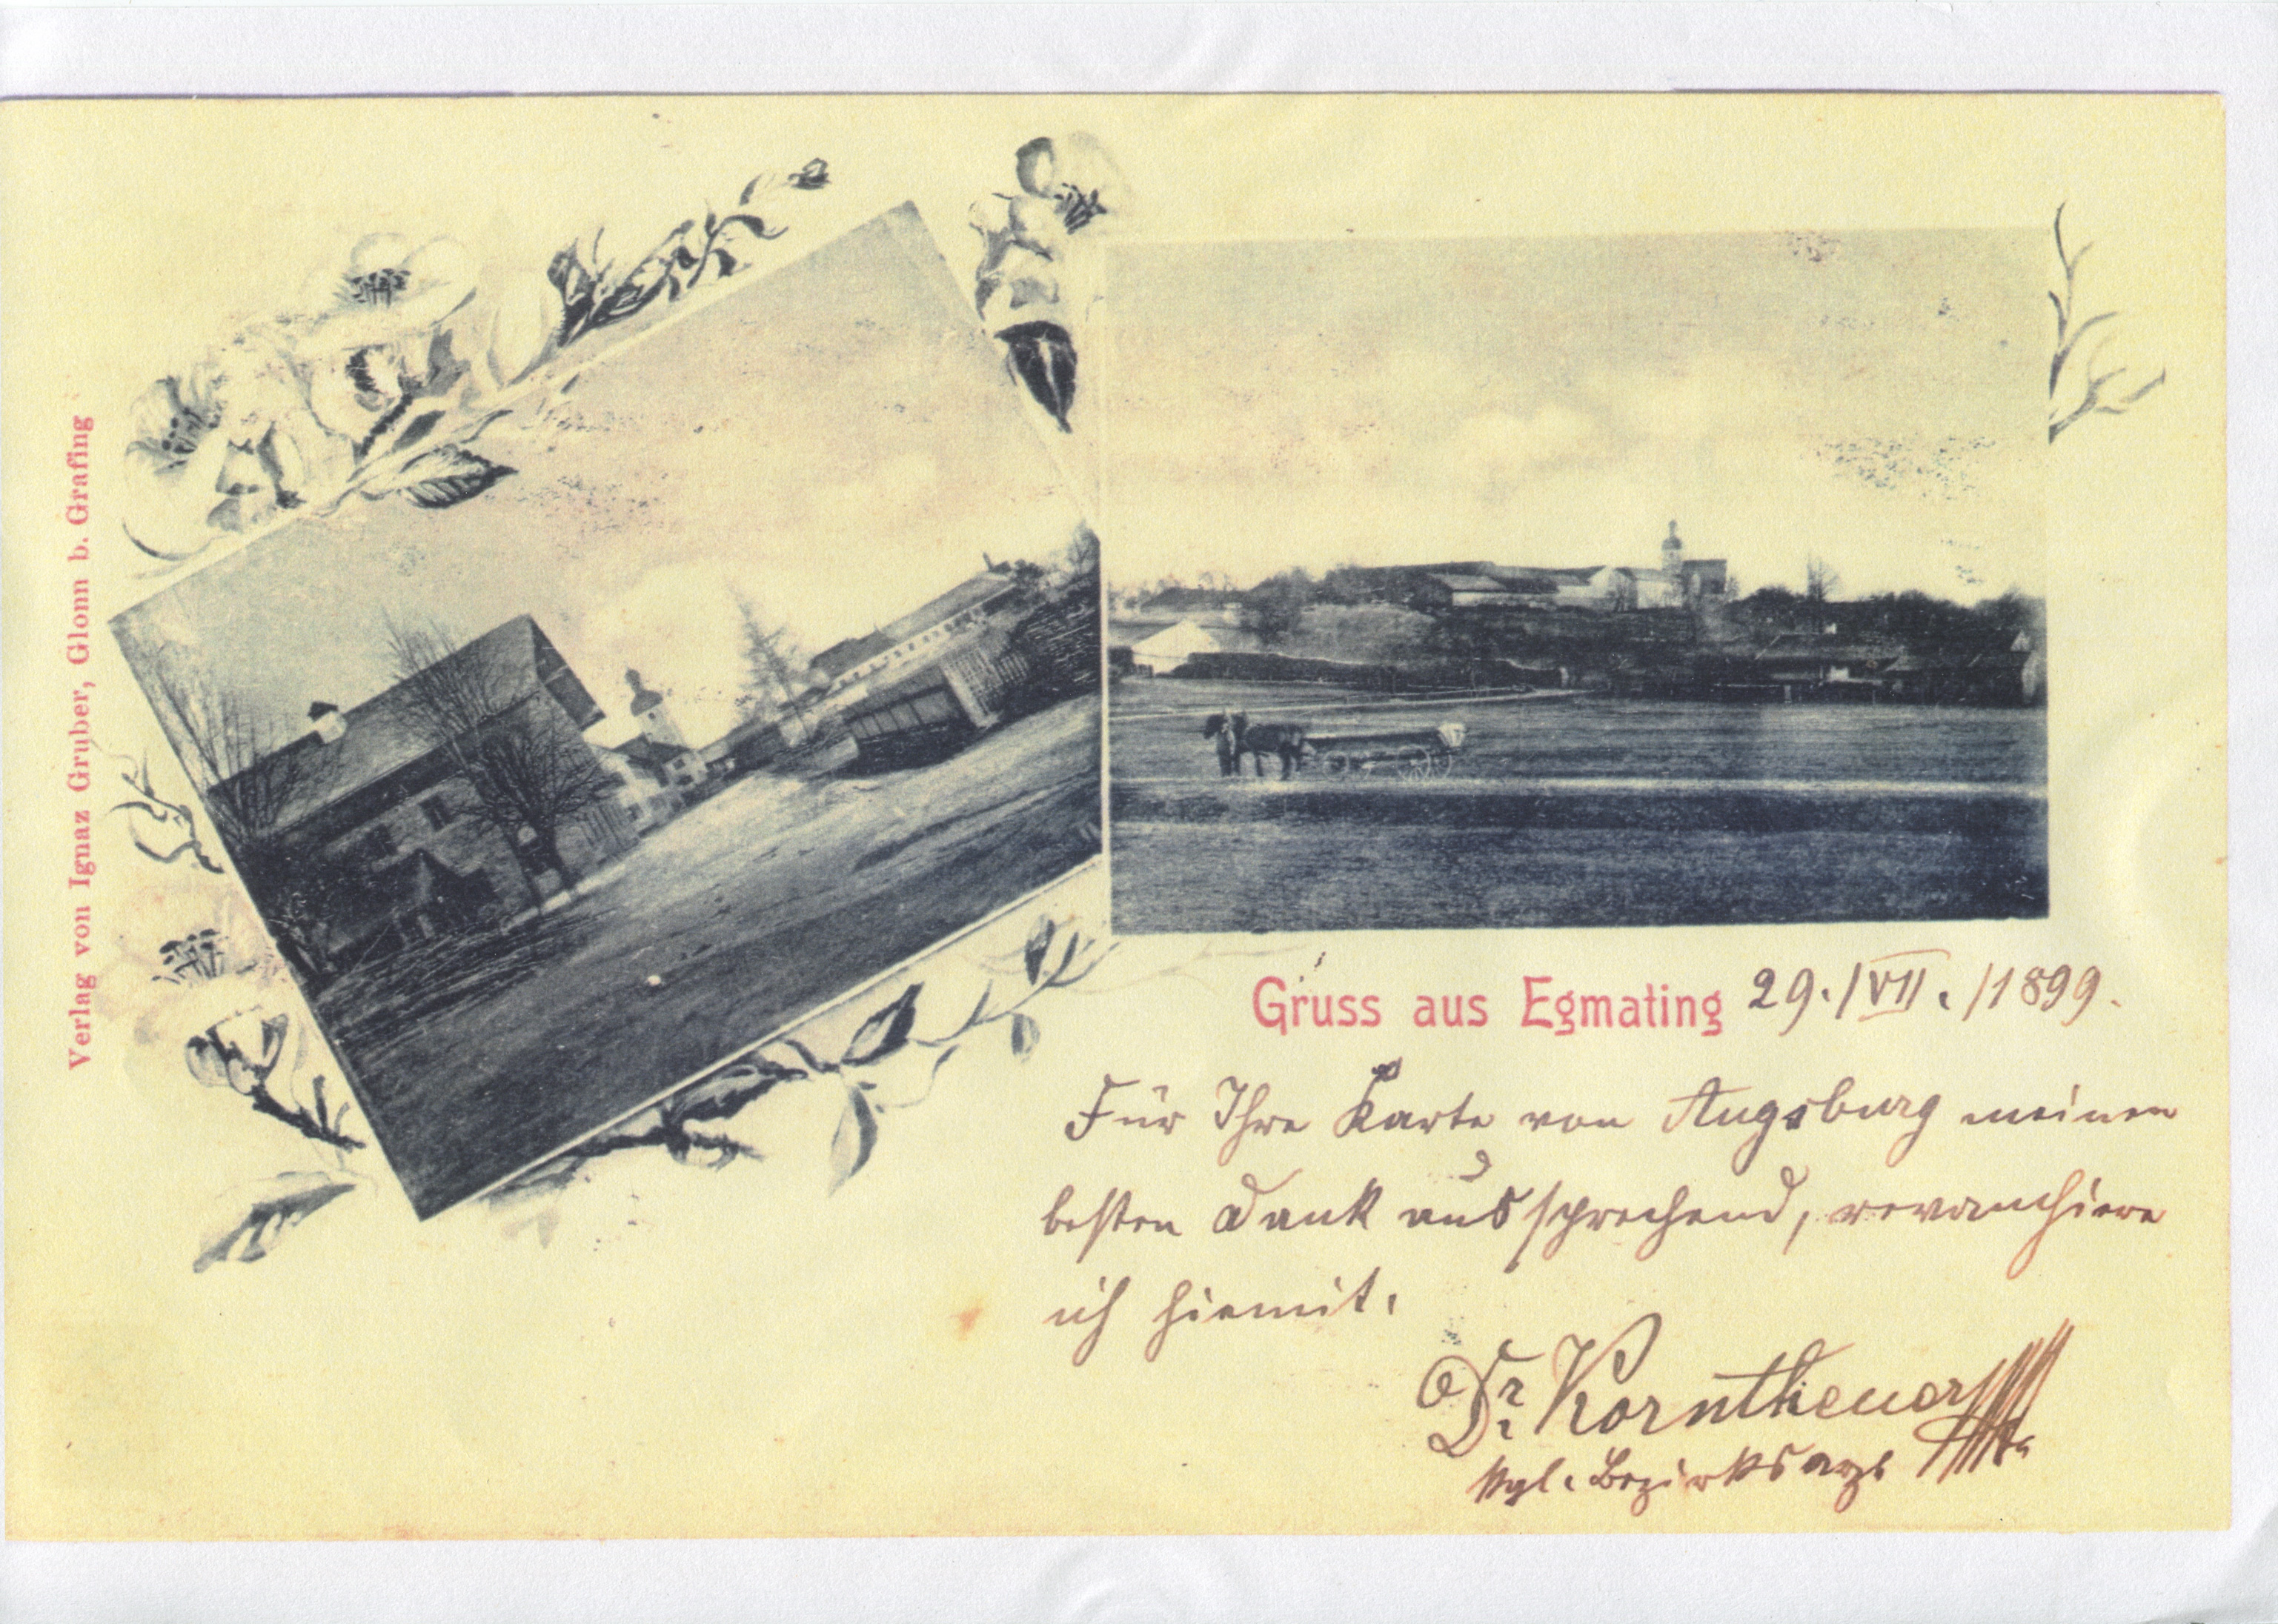 Verlag von Ignaz Gruber, Glonn b. Grafing
Gruss aus Egmating 29./VII./1899.
Für Ihre Karte von Augsburg meinen
besten Dank aussprechend, revanchiere
ich hiemit.
Dr. Korntheuer
kgl. Bezirksarzt